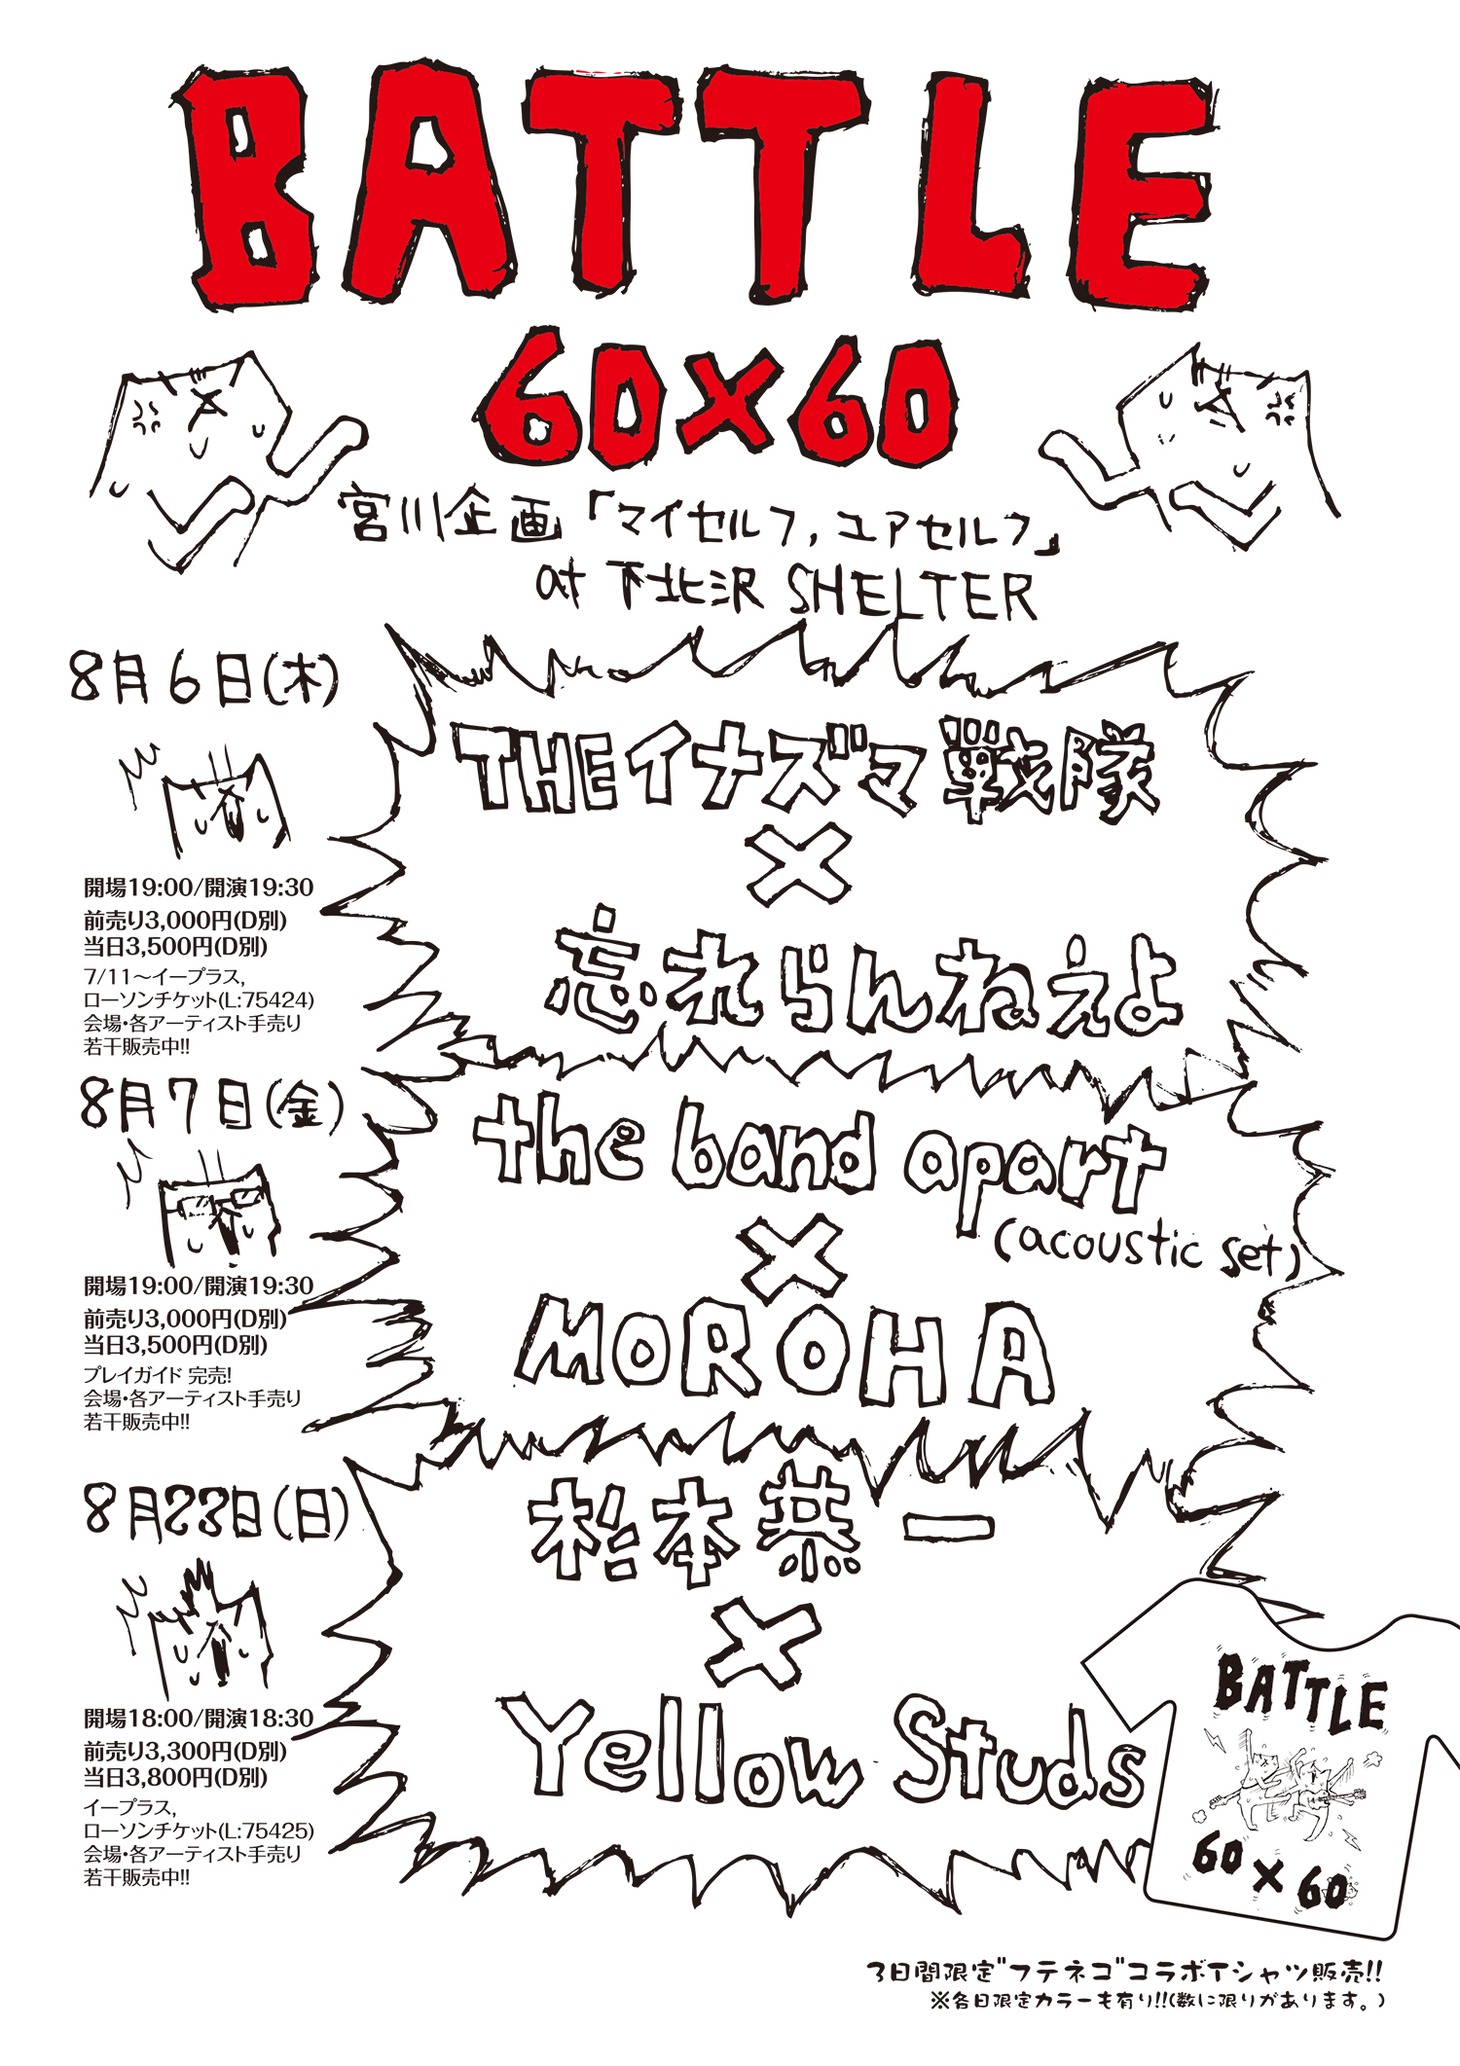 BATTLE
60×60
宮川企画「マイセルフ,ユアセルフ」
at 下北沢 SHELTER
8月6日(木)
THEイナズマ戦隊
×
忘れらんねえよ
開場19:00/開演19:30
前売り3,000円(D別)
当日3,500円(D別)
7/11〜イープラス,
ローソンチケット(L:75424)
会場・各アーティスト手売り
若干販売中!!
8月7日(金)
the band apart
(acoustic set)
×
MOROHA
開場19:00/開演19:30
前売り3,000円(D別)
当日3,500円(D別)
プレイガイド 完売!
会場・各アーティスト手売り
若干販売中!!
8月23日(日)
杉本恭一
×
Yellow Studs
開場18:00/開演18:30
前売り3,300円(D別)
当日3,800円(D別)
イープラス,
ローソンチケット(L:75425)
会場・各アーティスト手売り
若干販売中!!
BATTLE
60×60
3日間限定"フテネコ"コラボTシャツ販売!!
※各日限定カラーも有り!!(数に限りがあります。)